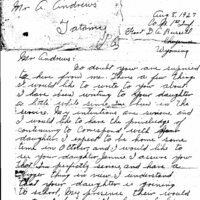 Mr A. Andrews
Tatamy
Aug 8, 1927
Co. 1st
Fort D. A. Russell
Wyoming
Mr Andrews:
No doubt you are surprised
to hear from me. There a few things
I would like to write to you about
I have been writing to your daughter
a little while since in the
Service. My intentions are serious and
I would like to have the privilege of
continuing to correspond with your
daughter. I expect to be home some
time in October and I would like to
see your daughter
that I'm perfectly sincere, and have no
in view. I understand
that your daughter is going
to school. My presence, there would